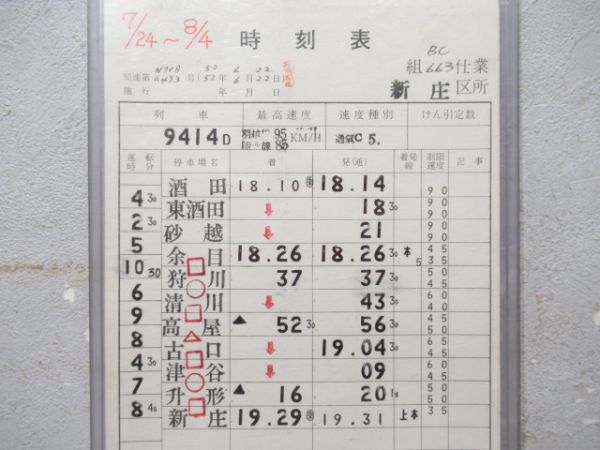 7/24～8/4
時 刻 表
BC
組 663 仕業
新 庄 区所
局達第 号(52年6月22日
施行 年 月 日
列 車 最高速度 速度種別 けん引定数
9414D 95 85 KM/H 通気C 5.
運転時分 停車場名 着 発(通) 着発線 制限速度 記事
酒 田 18.10 18.14
4 30 90
東酒田 ↓ 18 30
2 30 90
砂 越 ↓ 21
5 90
余 目 18.26 18.26 30 本 5 45 35
10 30
狩 川 37 37 30 45
6 60
清 川 ↓ 43 30 40
9 45
高 屋 ▲ 52 30 56 30
8 65
古 口 ↓ 19.04 30
4 30 60
津 谷 ↓ 09 45
7
升 形 ▲ 16 20 15 50
8 45
新 庄 19.29 19.31 上本 35